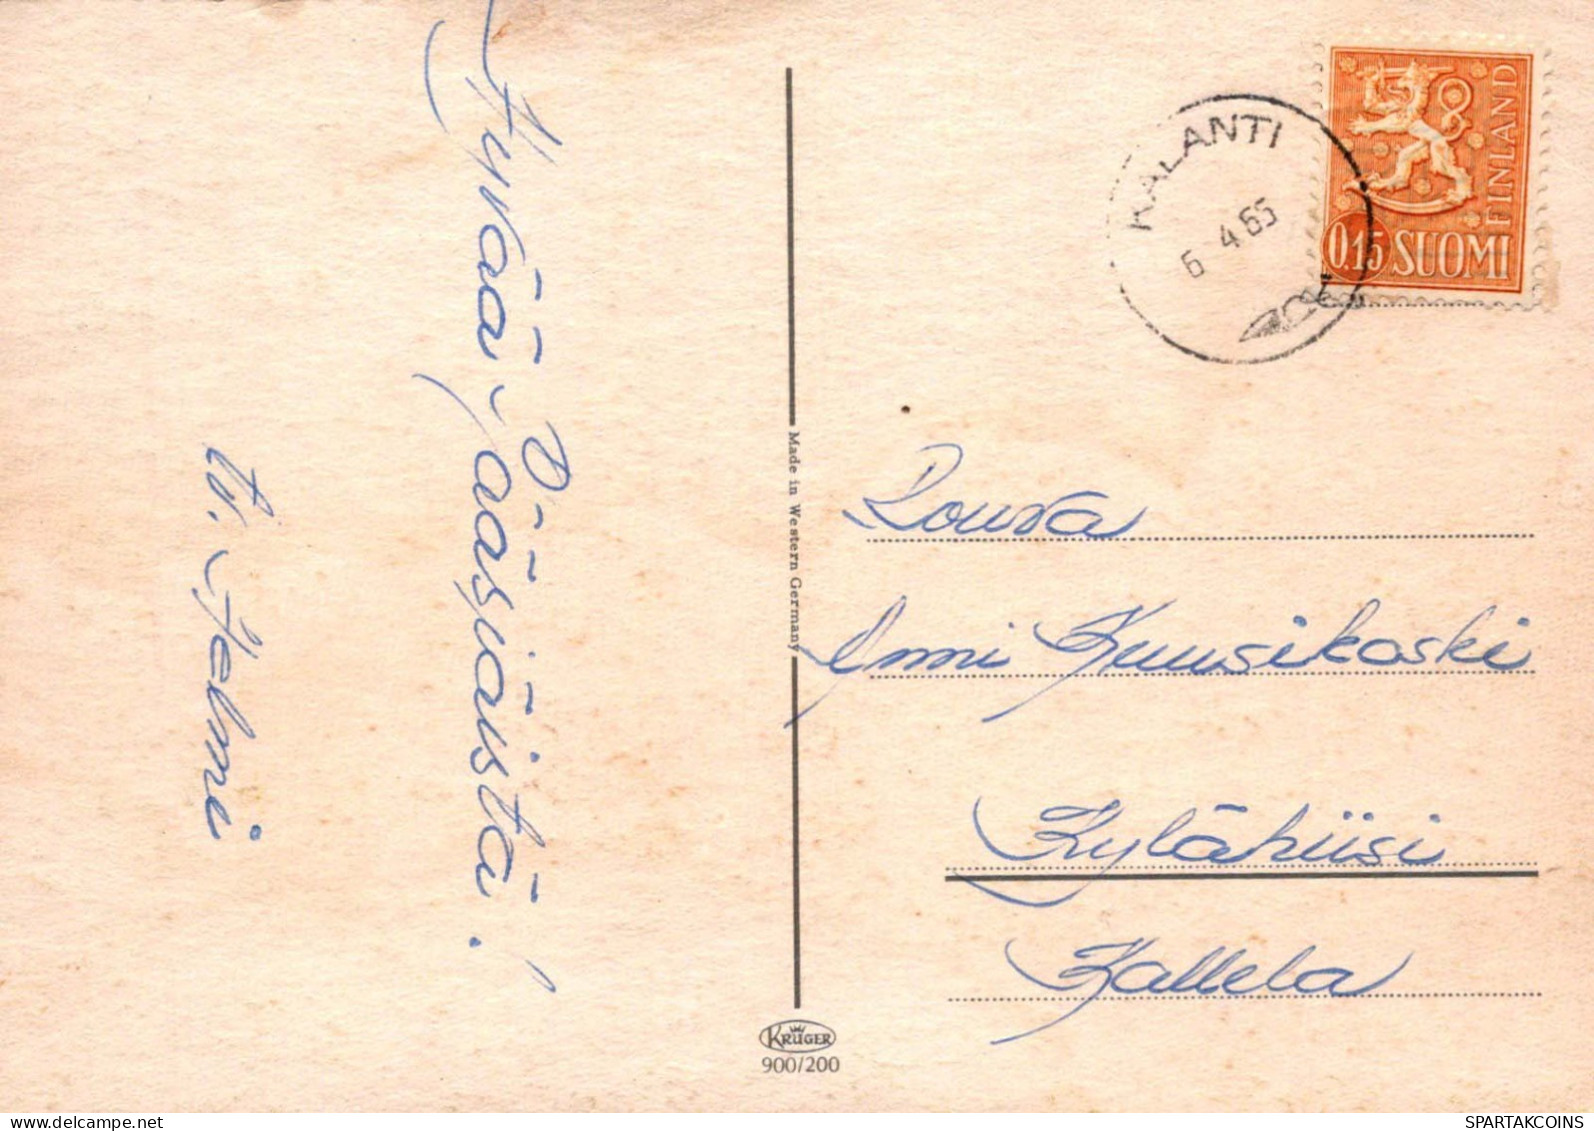 Hyvää pääsiäistä!
t. Helmi
Made in Western Germany
KRÜGER
900/200
KALANTI
6 4.65
FINLAND
0.15 SUOMI
Rouva
Kuusikoski
Kylähiisi
Kallela
www.delcampe.net
SPARTAKCOINS